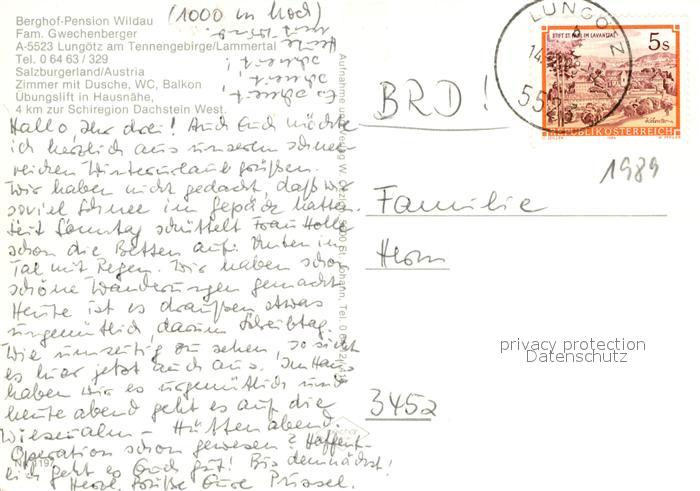 Berghof-Pension Wildau
Fam. Gwechenberger
A-5523 Lungötz am Tennengebirge/Lammertal
Tel. 0 64 63 / 329
Salzburgerland/Austria
Zimmer mit Dusche, WC, Balkon
Übungslift in Hausnähe,
4 km zur Schiregion Dachstein West.
(1000 m hoch)
Heute
schneit
schneit
es schneit!
Hallo, Ihr drei! Auch Euch möchte
ich herzlich aus unserem schnee-
reichen Winterurlaub grüßen.
Wir haben nicht gedacht, daß wir
soviel Schnee im Gepäck hatten.
Seit Sonntag schüttelt Frau Holle
schon die Betten auf. Unten im
Tal mit Regen. Wir haben schon
schöne Wanderungen gemacht.
Heute ist es draußen etwas
ungemütlich, darum Schreibtag.
Wie umseitig zu sehen, so sieht
es hier jetzt auch aus. Im Haus
haben wir es urgemütlich und
heute abend geht es auf die
Wieseralm - Hüttenabend.
Operation schon gewesen? Hoffent-
lich geht es Euch gut! Bis demnächst!
Herzl. Grüße Eure
1197
BRD!
LUNGÖTZ
14.
55
STIFT ST. PAUL IM LAVANTTAL
5 S
REPUBLIK ÖSTERREICH
1989
Familie
Herm
3452
privacy protection
Datenschutz